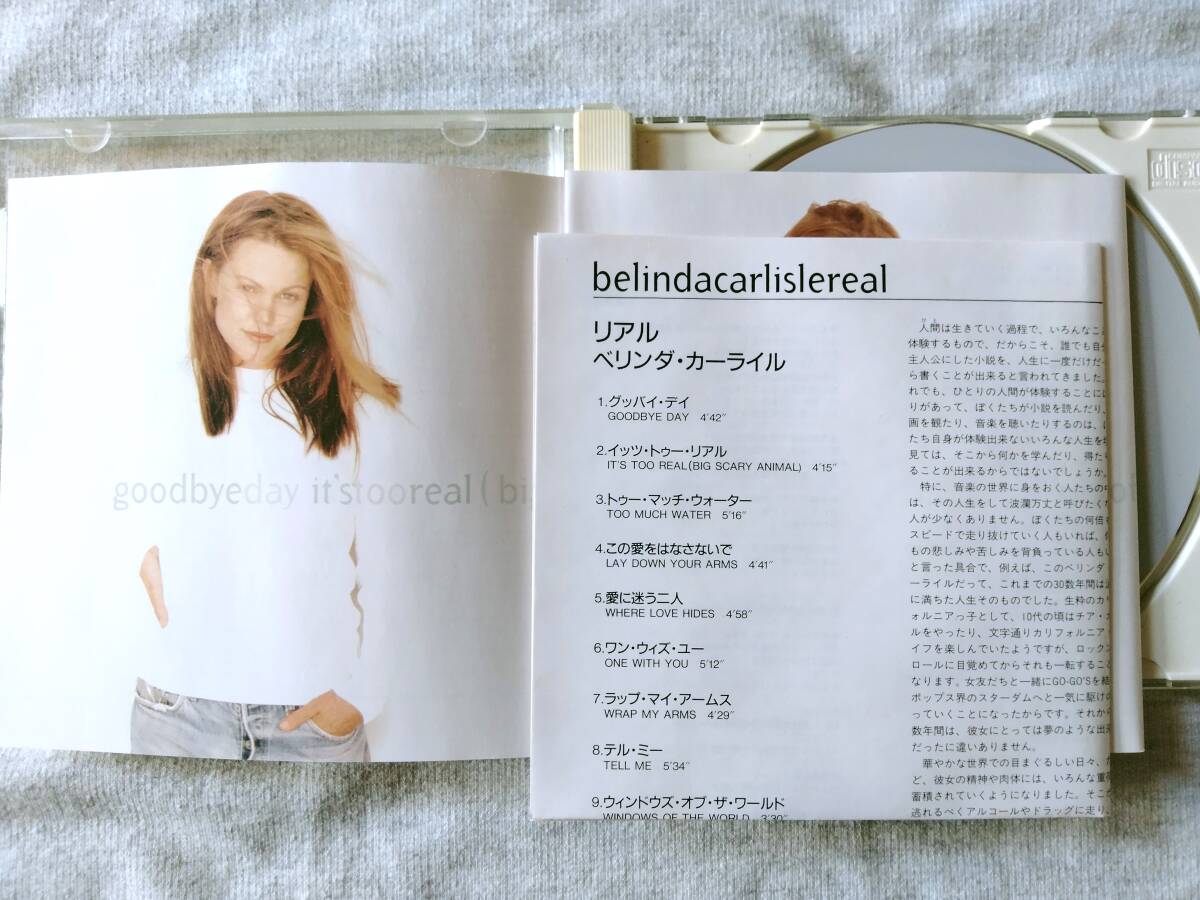 goodbyeday it'stooreal(bi
belindacarlislereal
リアル
ベリンダ・カーライル
1.グッバイ・デイ
GOODBYE DAY 4'42"
2.イッツ・トゥー・リアル
IT'S TOO REAL(BIG SCARY ANIMAL) 4'15"
3.トゥー・マッチ・ウォーター
TOO MUCH WATER 5'16"
4.この愛をはなさないで
LAY DOWN YOUR ARMS 4'41"
5.愛に迷う二人
WHERE LOVE HIDES 4'58"
6.ワン・ウィズ・ユー
ONE WITH YOU 5'12"
7.ラップ・マイ・アームス
WRAP MY ARMS 4'29"
8.テル・ミー
TELL ME 5'34"
9.ウィンドウズ・オブ・ザ・ワールド
WINDOWS OF THE WORLD 3'30"
人間は生きていく過程で、いろんなこ
体験するもので、だからこそ、誰でも自
主人公にした小説を、人生に一度だけだ
ら書くことが出来ると言われてきました。
れでも、ひとりの人間が体験することに
りがあって、ぼくたちが小説を読んだり、
画を観たり、音楽を聴いたりするのは、
たち自身が体験出来ないいろんな人生を
見ては、そこから何かを学んだり、得た
ることが出来るからではないでしょうか。
特に、音楽の世界に身をおく人たちの
は、その人生をして波瀾万丈と呼びたく
人が少なくありません。ぼくたちの何倍
スピードで走り抜けていく人もいれば、
もの悲しみや苦しみを背負っている人も
と言った具合で、例えば、このベリンダ
ーライルだって、これまでの30数年間は
に満ちた人生そのものでした。生粋のカ
ォルニアっ子として、10代の頃はチア・
ルをやったり、文字通りカリフォルニア
イフを楽しんでいたようですが、ロックン
ロールに目覚めてからそれも一転するこ
なります。女友だちと一緒にGO-GO'Sを結
ポップス界のスターダムへと一気に駆け
っていくことになったからです。それか
数年間は、彼女にとっては夢のような出
だったに違いありません。
華やかな世界での目まぐるしい日々、
ど、彼女の精神や肉体には、いろんな重
蓄積されていくようになりました。そこ
逃れるべくアルコールやドラッグに走り、
disc